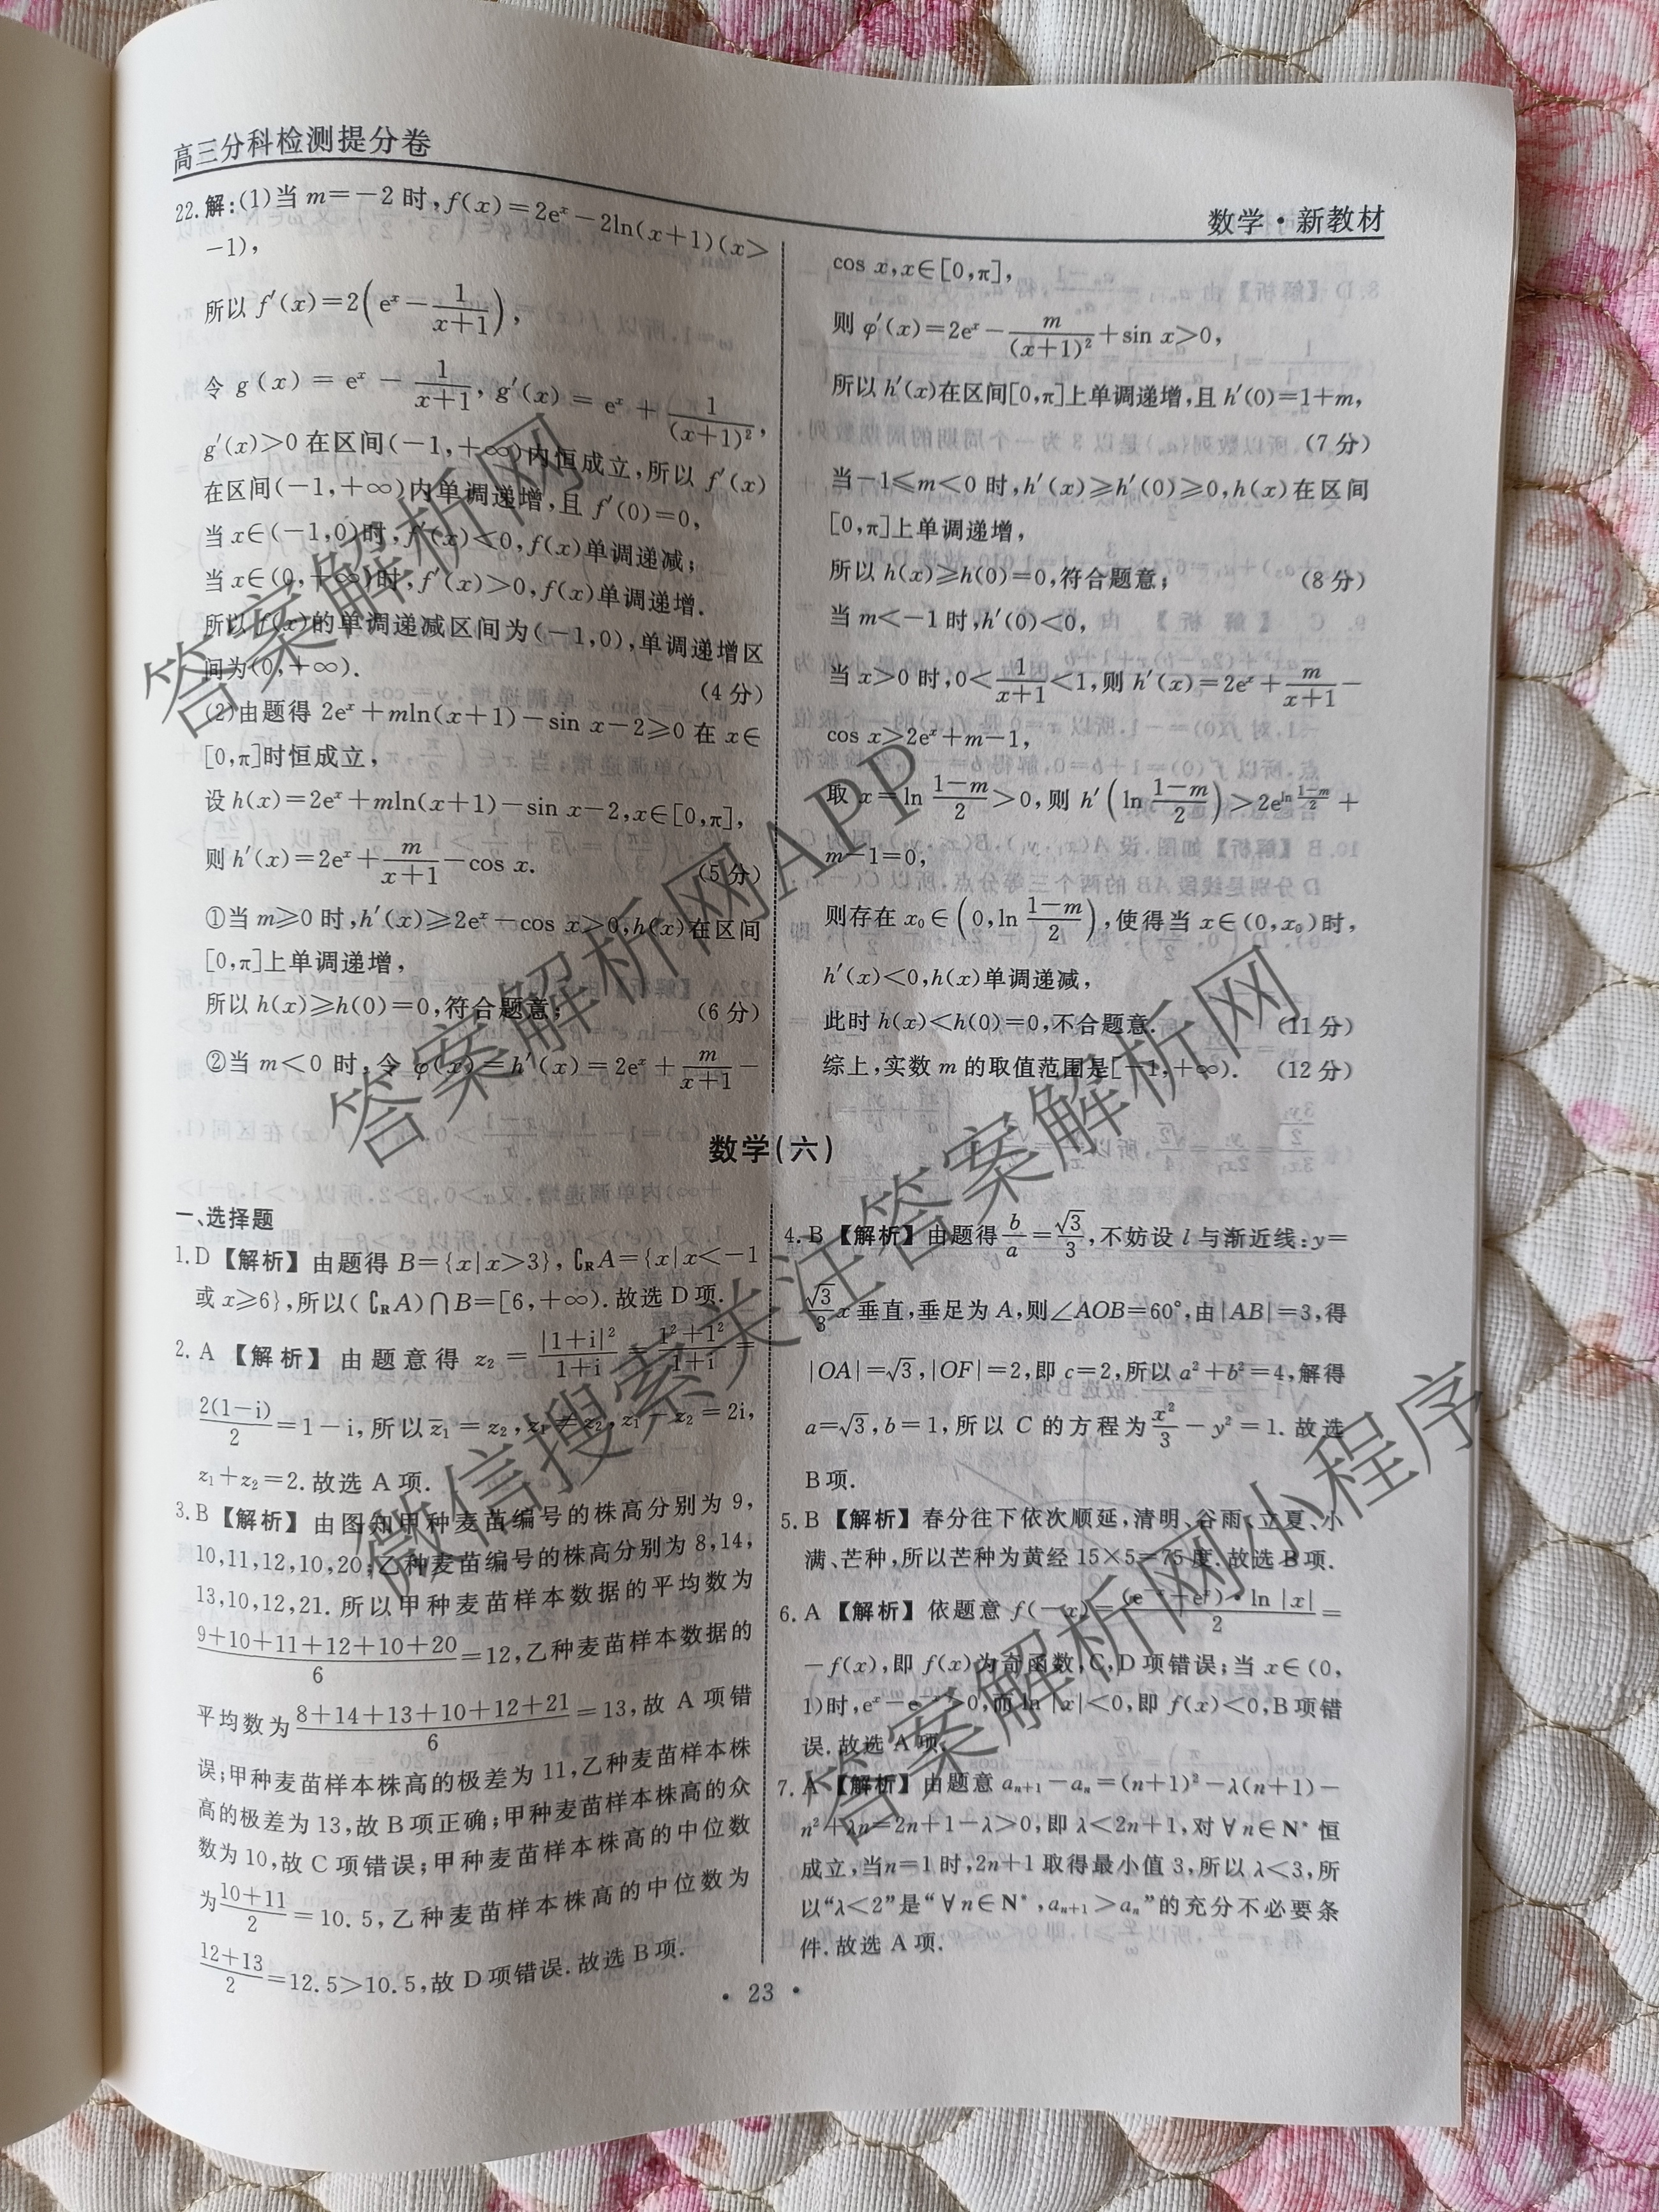 高三分科检测提分卷
数学·新教材
22.解:(1)当 m=-2 时,f(x)=2eˣ-2ln(x+1)(x>
-1),
所以 f′(x)=2(eˣ-1/(x+1)),
令 g(x)=eˣ-1/(x+1),g′(x)=eˣ+1/(x+1)²,
g′(x)>0 在区间(-1,+∞)内恒成立,所以 f′(x)
在区间(-1,+∞)内单调递增,且 f′(0)=0,
当 x∈(-1,0)时,f′(x)<0,f(x)单调递减;
当 x∈(0,+∞)时,f′(x)>0,f(x)单调递增.
所以 f(x)的单调递减区间为(-1,0),单调递增区
间为(0,+∞). (4分)
(2)由题得 2eˣ+mln(x+1)-sin x-2≥0 在 x∈
[0,π]时恒成立,
设 h(x)=2eˣ+mln(x+1)-sin x-2,x∈[0,π],
则 h′(x)=2eˣ+m/(x+1)-cos x. (5分)
①当 m≥0 时,h′(x)≥2eˣ-cos x>0,h(x)在区间
[0,π]上单调递增,
所以 h(x)≥h(0)=0,符合题意; (6分)
②当 m<0 时,令 φ(x)=h′(x)=2eˣ+m/(x+1)-
cos x,x∈[0,π],
则 φ′(x)=2eˣ-m/(x+1)²+sin x>0,
所以 h′(x)在区间[0,π]上单调递增,且 h′(0)=1+m,
(7分)
当-1≤m<0 时,h′(x)≥h′(0)≥0,h(x)在区间
[0,π]上单调递增,
所以 h(x)≥h(0)=0,符合题意; (8分)
当 m<-1 时,h′(0)<0,
当 x>0 时,0<1/(x+1)<1,则 h′(x)=2eˣ+m/(x+1)-
cos x>2eˣ+m-1,
取 x=ln (1-m)/2>0,则 h′(ln (1-m)/2)>2e^(ln (1-m)/2)+
m-1=0,
则存在 x₀∈(0,ln (1-m)/2),使得当 x∈(0,x₀)时,
h′(x)<0,h(x)单调递减,
此时 h(x)<h(0)=0,不合题意. (11分)
综上,实数 m 的取值范围是[-1,+∞). (12分)
数学(六)
一、选择题
1.D【解析】由题得 B={x|x>3},∁RA={x|x<-1
或 x≥6},所以(∁RA)∩B=[6,+∞).故选 D 项.
2.A【解析】由题意得 z₂=|1+i|²/(1+i)=(1²+1²)/(1+i)=
2(1-i)/2=1-i,所以 z̄₁=z₂,z₁≠z₂,z₁-z₂=2i,
z₁+z₂=2.故选 A 项.
3.B【解析】由图知甲种麦苗编号的株高分别为 9,
10,11,12,10,20;乙种麦苗编号的株高分别为 8,14,
13,10,12,21.所以甲种麦苗样本数据的平均数为
(9+10+11+12+10+20)/6=12,乙种麦苗样本数据的
平均数为(8+14+13+10+12+21)/6=13,故 A 项错
误;甲种麦苗样本株高的极差为 11,乙种麦苗样本株
高的极差为 13,故 B 项正确;甲种麦苗样本株高的众
数为 10,故 C 项错误;甲种麦苗样本株高的中位数
为(10+11)/2=10.5,乙种麦苗样本株高的中位数为
(12+13)/2=12.5>10.5,故 D 项错误.故选 B 项.
4.B【解析】由题得 b/a=√3/3,不妨设 l 与渐近线:y=
√3/3 x 垂直,垂足为 A,则∠AOB=60°,由|AB|=3,得
|OA|=√3,|OF|=2,即 c=2,所以 a²+b²=4,解得
a=√3,b=1,所以 C 的方程为 x²/3-y²=1.故选
B 项.
5.B【解析】春分往下依次顺延,清明、谷雨、立夏、小
满、芒种,所以芒种为黄经 15×5=75 度.故选 B 项.
6.A【解析】依题意 f(-x)=(e⁻ˣ-eˣ)·ln |x|/2=
-f(x),即 f(x)为奇函数,C,D 项错误;当 x∈(0,
1)时,eˣ-e⁻ˣ>0,而 ln |x|<0,即 f(x)<0,B 项错
误.故选 A 项.
7.A【解析】由题意 aₙ₊₁-aₙ=(n+1)²-λ(n+1)-
n²+λn=2n+1-λ>0,即 λ<2n+1,对∀n∈N* 恒
成立,当 n=1 时,2n+1 取得最小值 3,所以 λ<3,所
以“λ<2”是“∀n∈N*,aₙ₊₁>aₙ”的充分不必要条
件.故选 A 项.
· 23 ·
答案解析网
答案解析网APP
微信搜索关注答案解析网
答案解析网小程序